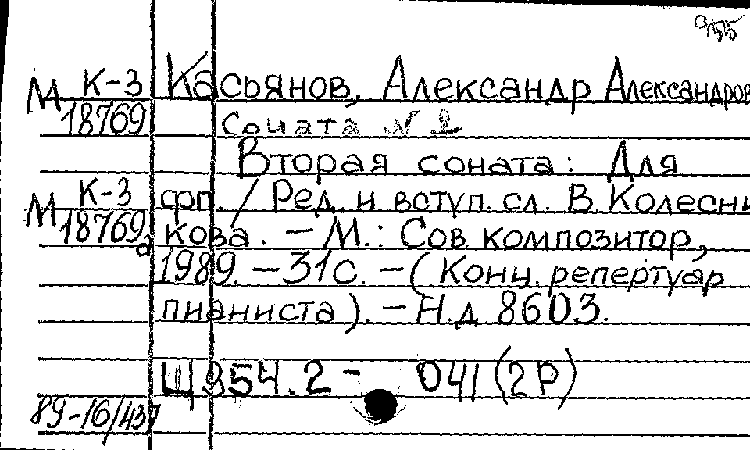 М К-3 Касьянов, Александр Александров
18769 Соната № 2
Вторая соната: Для
М К-3 фп. / Ред. и вступ. сл. В. Колесни
18769а кова. – М.: Сов. композитор,
1989. – 31с. – (Конц. репертуар
пианиста). – Н.д. 8603.
Щ954.2 - 041(2Р)
89-16/437